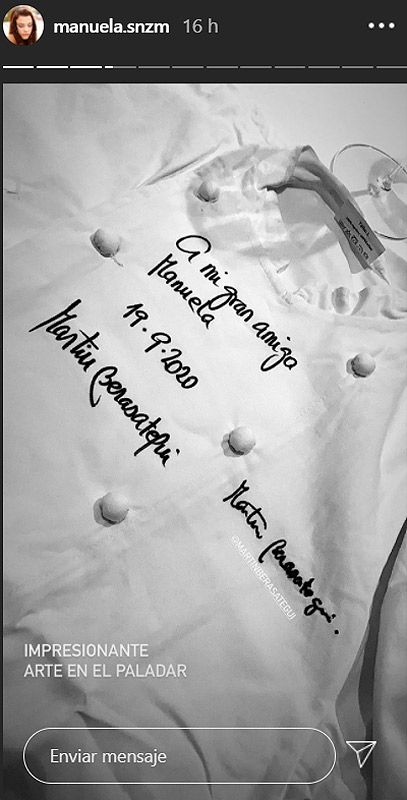 manuela.snzm 16 h
A mi gran amiga
Manuela
19.9.2020
Martin Berasategui
Martin Berasategui.
@MARTINBERASATEGUI
IMPRESIONANTE
ARTE EN EL PALADAR
Enviar mensaje